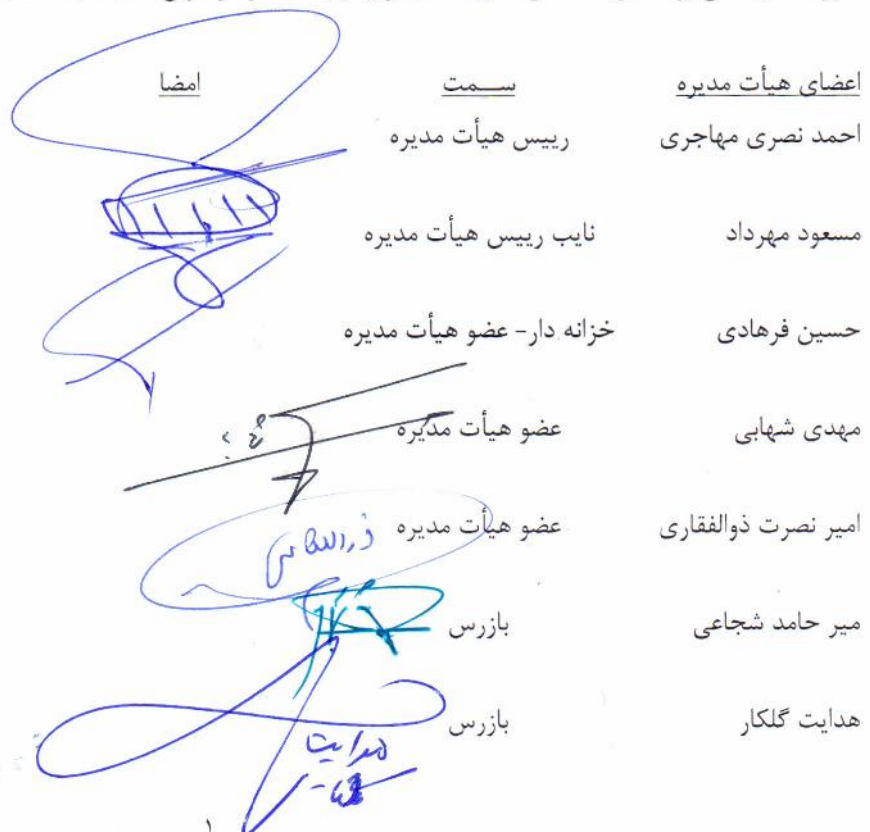 اعضای هیأت مدیره سـمت امضا
احمد نصری مهاجری رییس هیأت مدیره
مسعود مهرداد نایب رییس هیأت مدیره
حسین فرهادی خزانه دار- عضو هیأت مدیره
مهدی شهابی عضو هیأت مدیره
امیر نصرت ذوالفقاری عضو هیأت مدیره
میر حامد شجاعی بازرس
هدایت گلکار بازرس
هدایت
۱